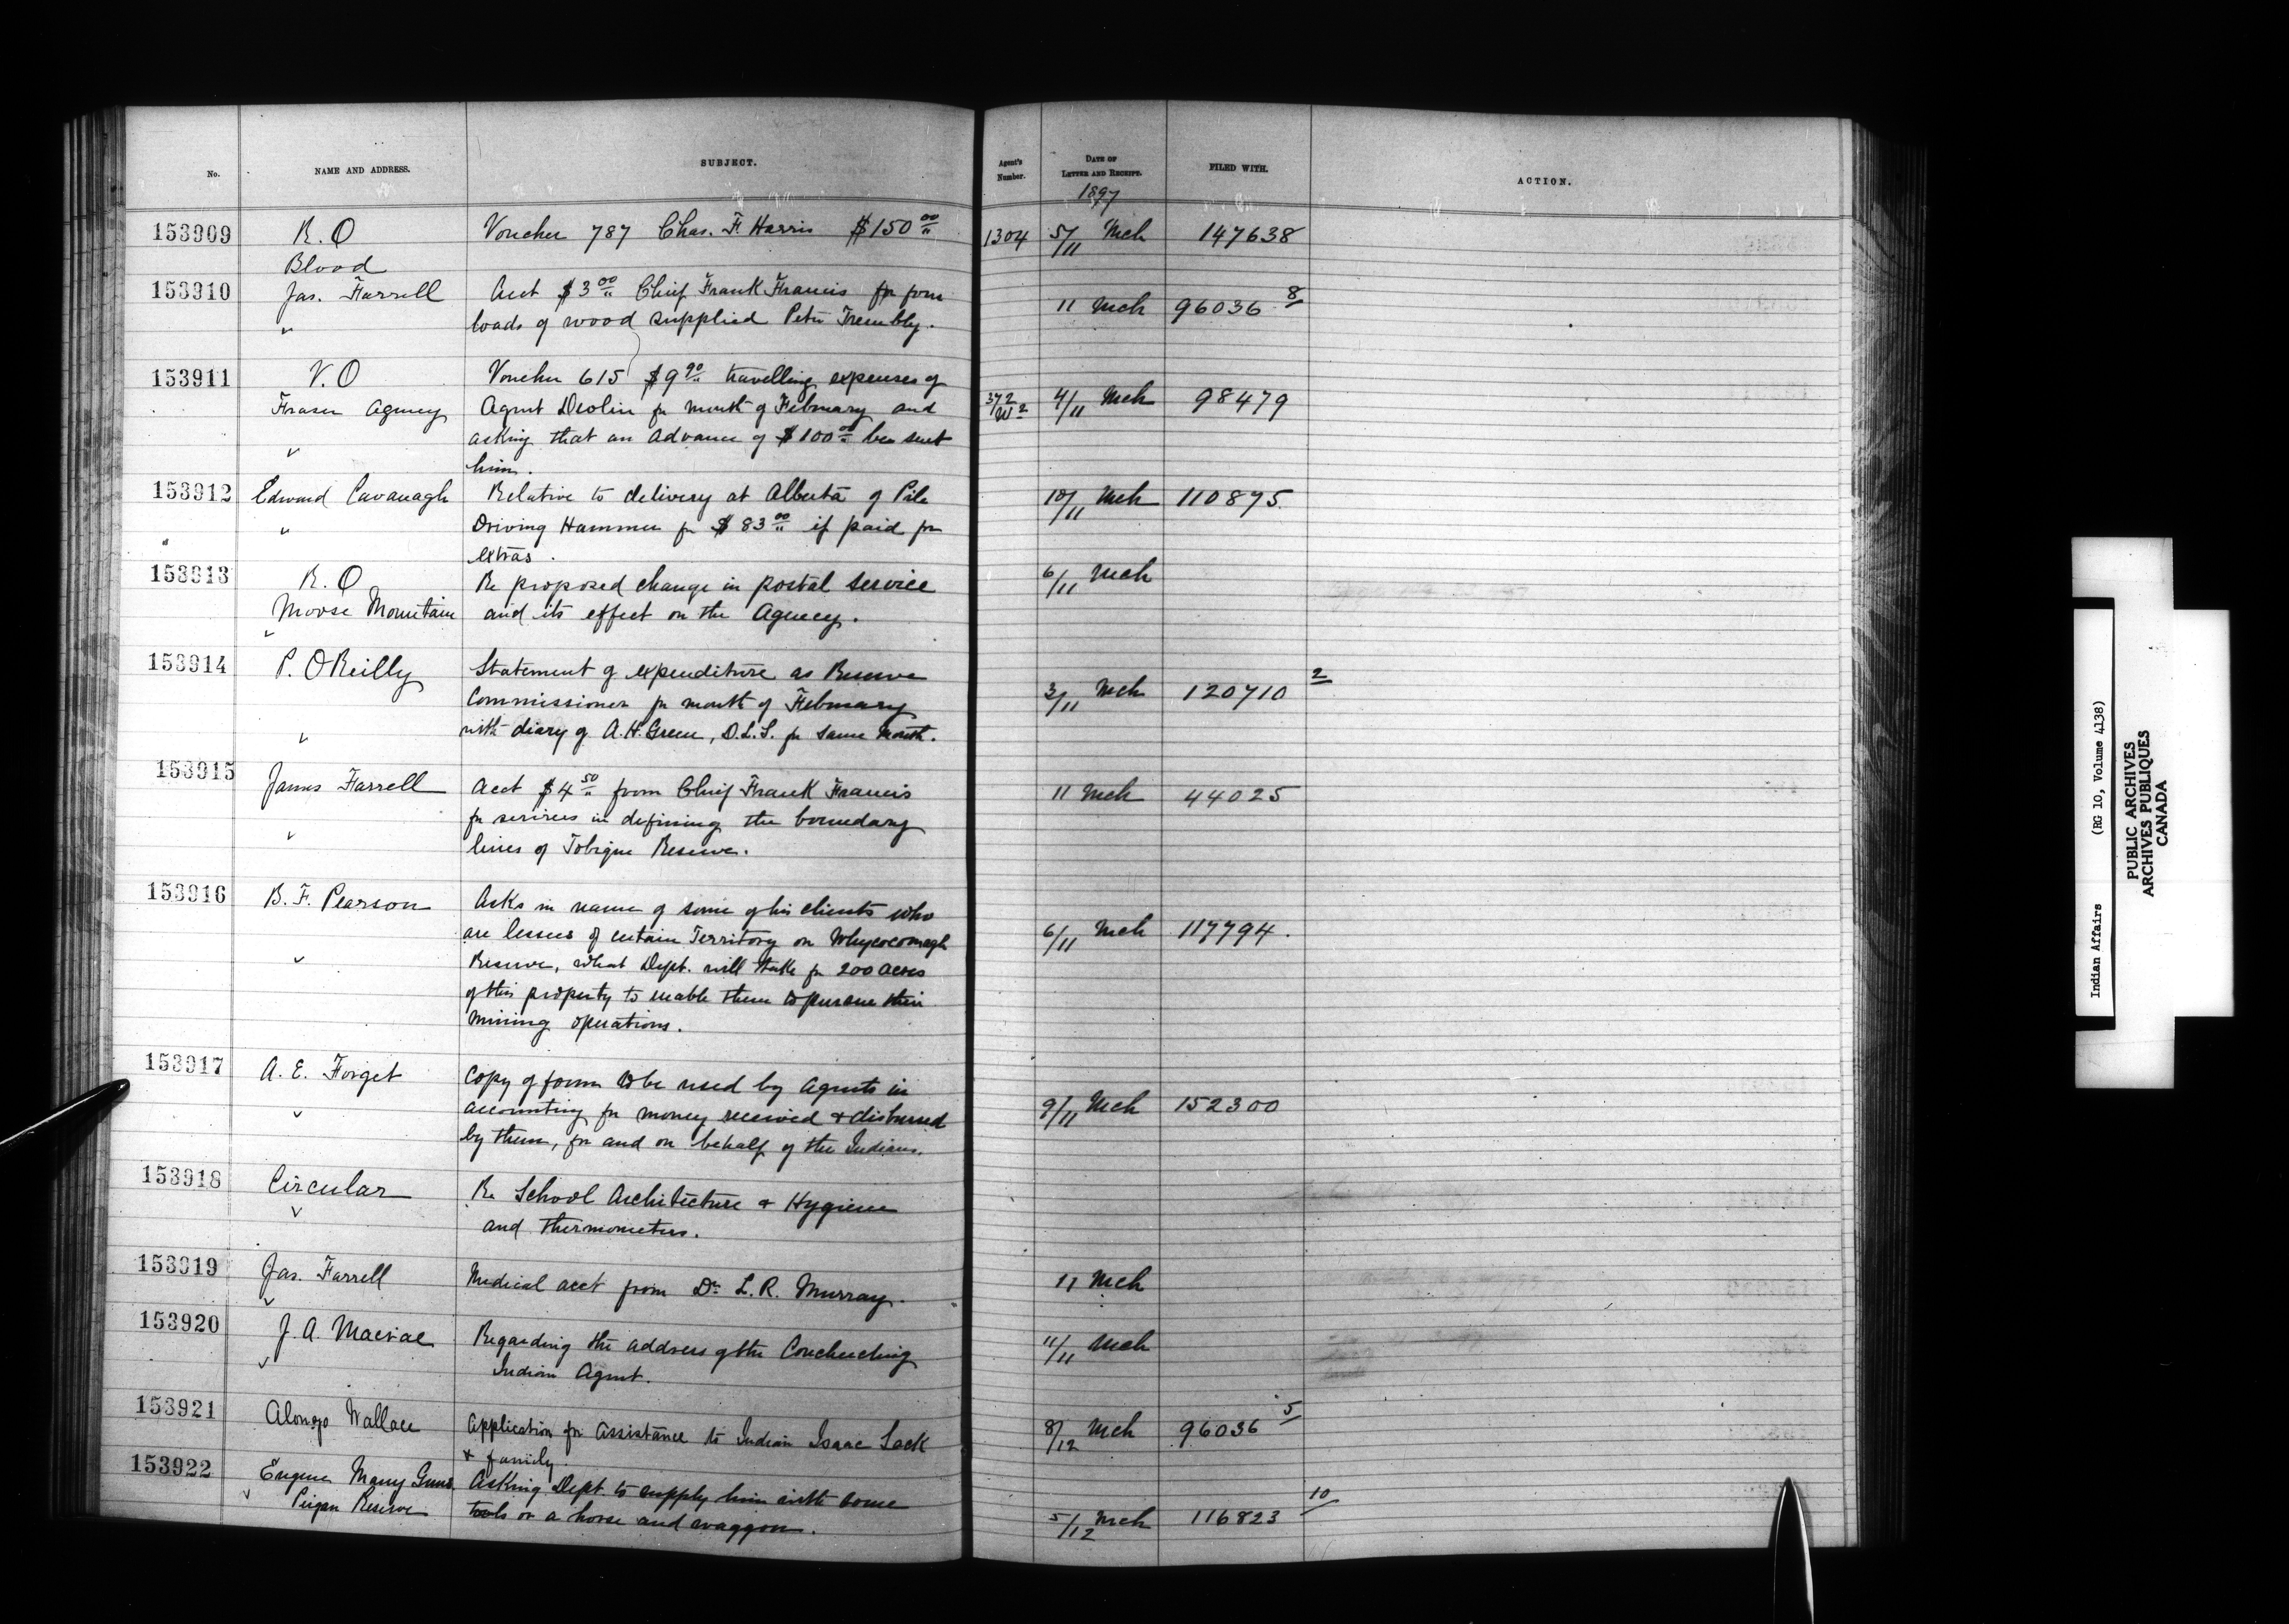 No. NAME AND ADDRESS. SUBJECT. Agent's Number. DATE OF LETTER AND RECEIPT. FILED WITH. ACTION.
1897
153909 R.O Voucher 787 Chas. F. Harris $150 00 1304 5/11 Mch 147638
Blood
153910 Jas. Farrell Acct $3 00 Chief Frank Francis for four 11 Mch 96036 8
" loads of wood supplied Peter Trembly.
153911 V.O Voucher 615 $9 90 travelling expenses of
Fraser Agency Agent Devlin for month of February and 372/W2 4/11 Mch 98479
asking that an advance of $100 00 be sent
" him.
153912 Edward Cavanagh Relative to delivery at Alberta of Pile 10/11 Mch 110875.
" Driving Hammer for $83 00 if paid for
extras.
153913 R.O Re proposed change in postal service 6/11 Mch
Moose Mountain and its effect on the Agency.
153914 P. O'Reilly Statement of expenditure as Reserve
Commissioner for month of February 3/11 Mch 120710 2
" with diary of A.H. Green, D.L.S. for same month.
153915 James Farrell Acct $4 50 from Chief Frank Francis 11 Mch 44025
for services in defining the boundary
" lines of Tobique Reserve.
153916 B. F. Pearson Asks in name of some of his clients who
are lessees of certain Territory on Whycocomagh 6/11 Mch 117794.
" Reserve, what Dept. will take for 200 acres
of this property to enable them to pursue their
mining operations.
153917 A. E. Forget Copy of form to be used by Agents in
" accounting for money received & disbursed 9/11 Mch 152300
by them, for and on behalf of the Indians.
153918 Circular Re School Architecture & Hygiene
" and thermometers.
153919 Jas. Farrell Medical acct from Dr. L. R. Murray. 11 Mch
153920 J. A. Macrae Regarding the address of the Couchiching 11/11 Mch
Indian Agent.
153921 Alonzo Wallace Application for Assistance to Indian Isaac Sack 8/12 Mch 96036 5
& family.
153922 Eugene Many Guns Asking Dept. to supply him with some
Peigan Reserve tools or a horse and waggon. 5/12 Mch 116823 10
Indian Affairs (RG 10, Volume 4138)
PUBLIC ARCHIVES
ARCHIVES PUBLIQUES
CANADA